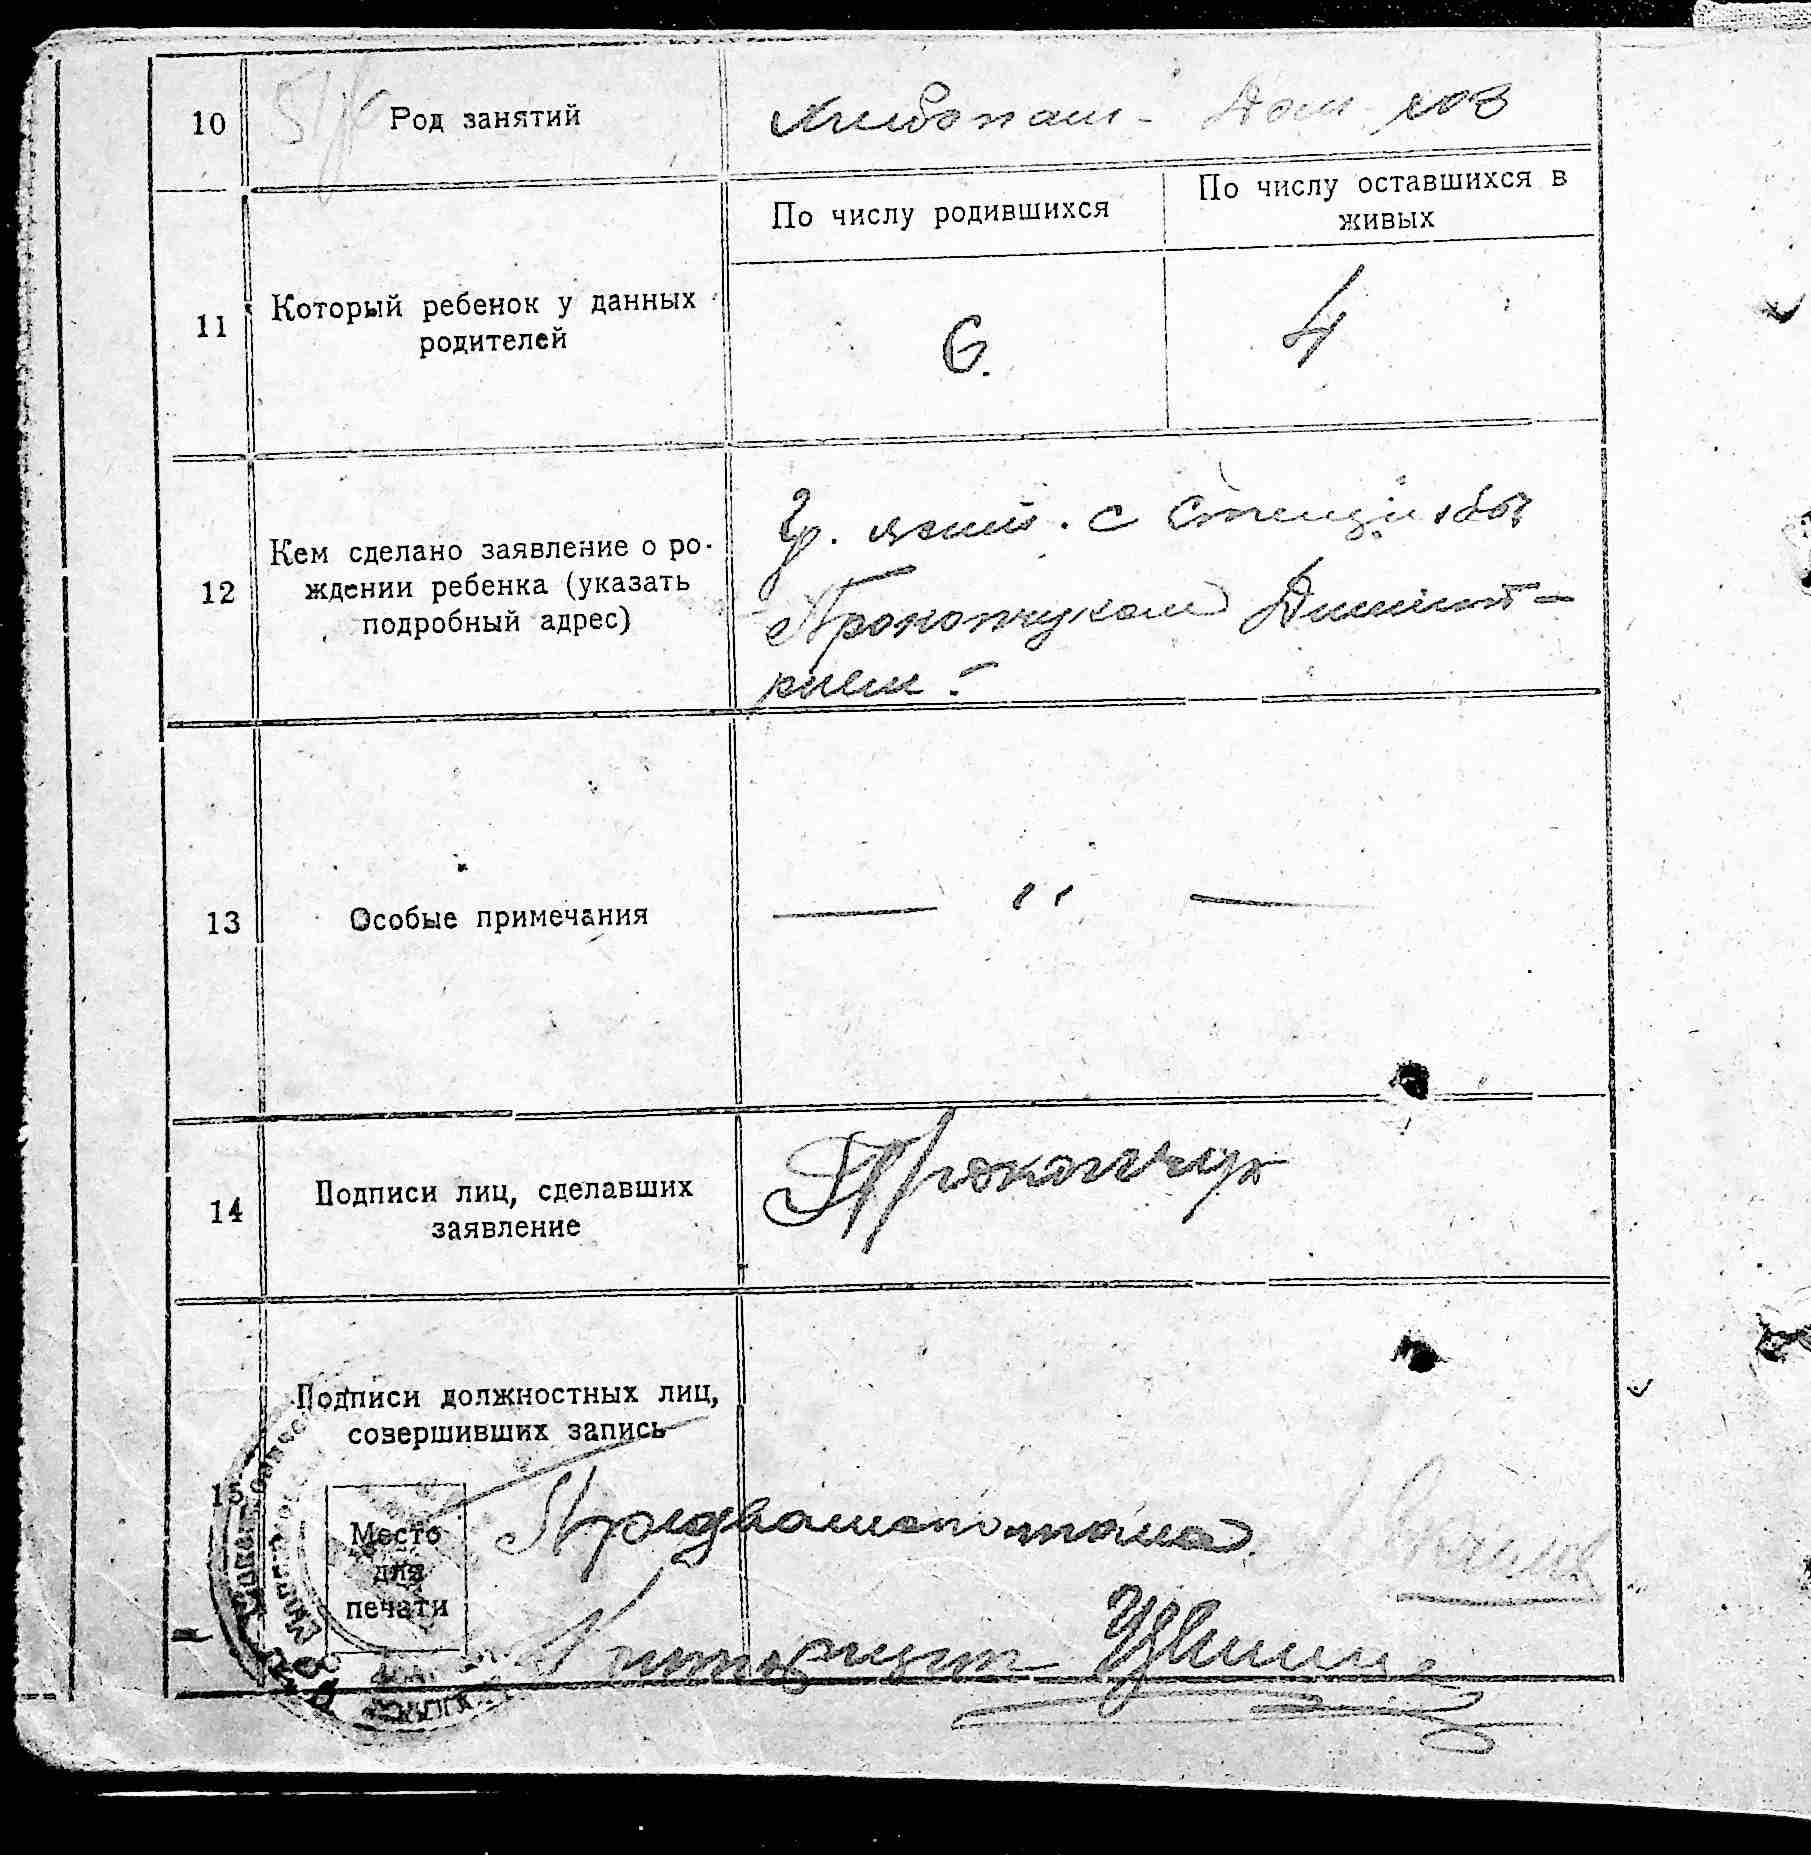 10 Род занятий Хлебопаш- Дом. хоз
По числу родившихся
По числу оставшихся в
живых
11
Который ребенок у данных
родителей
6. 4
12
Кем сделано заявление о ро-
ждении ребенка (указать
подробный адрес)
Гр. жит. с
Прокопчуком Дмит-
рием.
13 Особые примечания — " —
14
Подписи лиц, сделавших
заявление
Прокопчук
15
Подписи должностных лиц,
совершивших запись
Место
для
печати